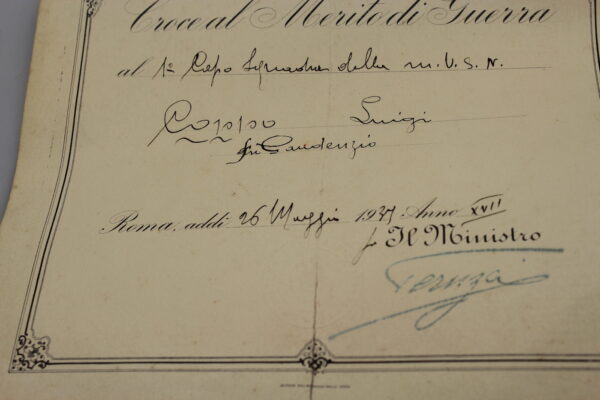 Croce al Merito di Guerra
al 1° Capo Squadra della M.V.S.N.
Coppo Luigi
fu Gaudenzio
Roma, addì 26 Maggio 1939 Anno XVII
Il Ministro
Teruzzi